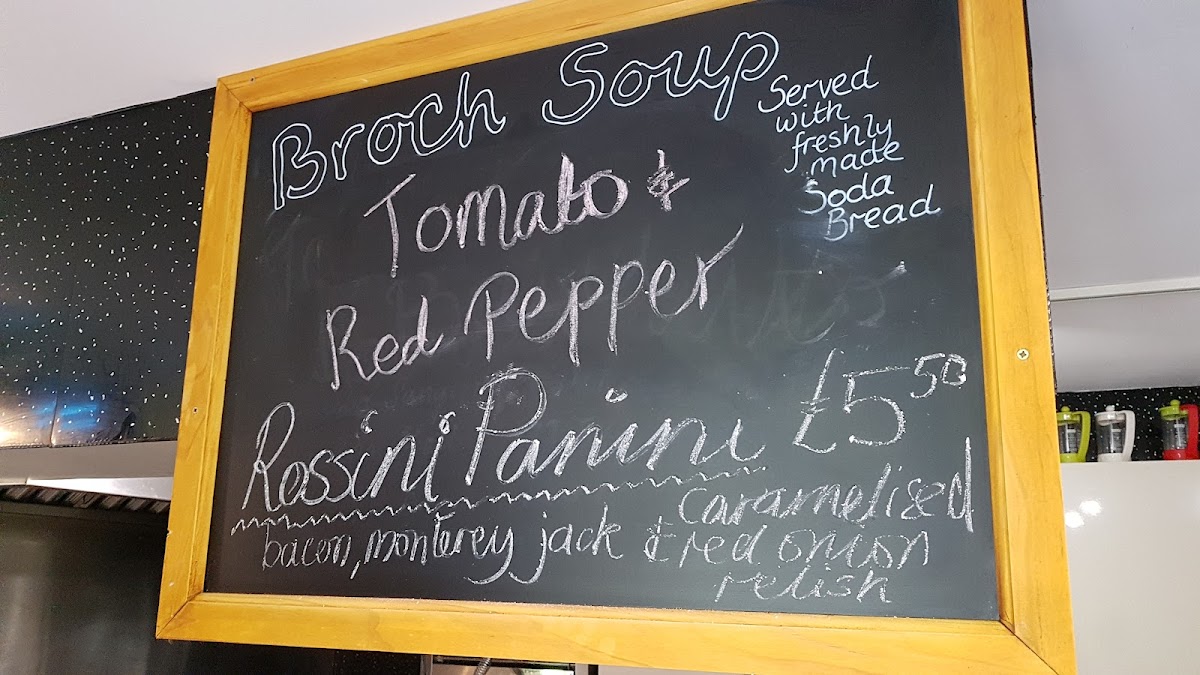 Broch Soup
Served
with
freshly
made
Soda
Bread
Tomato &
Red Pepper
Rossini Panini £5.50
bacon, monterey jack & caramelised
red onion
relish